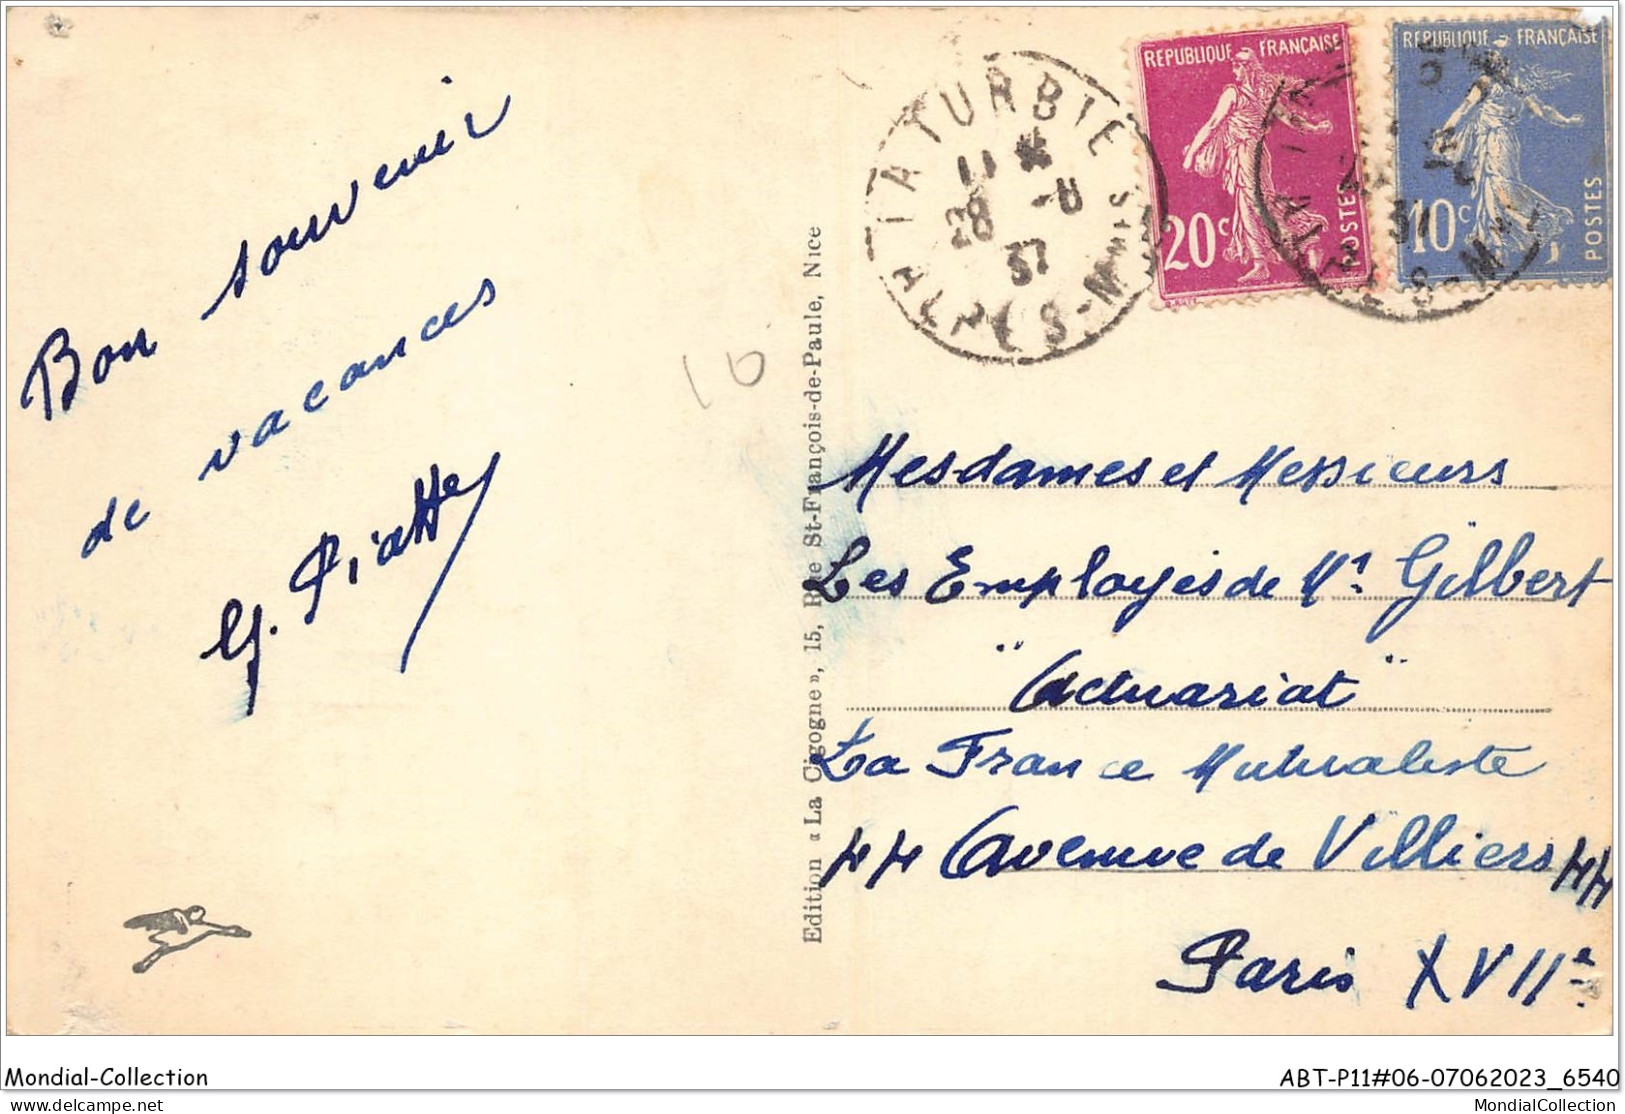 Bon souvenir
de vacances
G. Piatte
10
Edition « La Cigogne », 15, Rue St-François-de-Paule, Nice
LA TURBIE
11 *
28 -8
37
ALPES-MMES
REPUBLIQUE FRANÇAISE
20c
POSTES
REPUBLIQUE FRANÇAISE
10c
POSTES
37
Mesdames et Messieurs
Les Employés de Mr Gilbert
"Actuariat"
La France Mutualiste
44 Avenue de Villiers 44
Paris XVIIe
Mondial-Collection
ABT-P11#06-07062023_6540
delcampe.net
MondialCollection